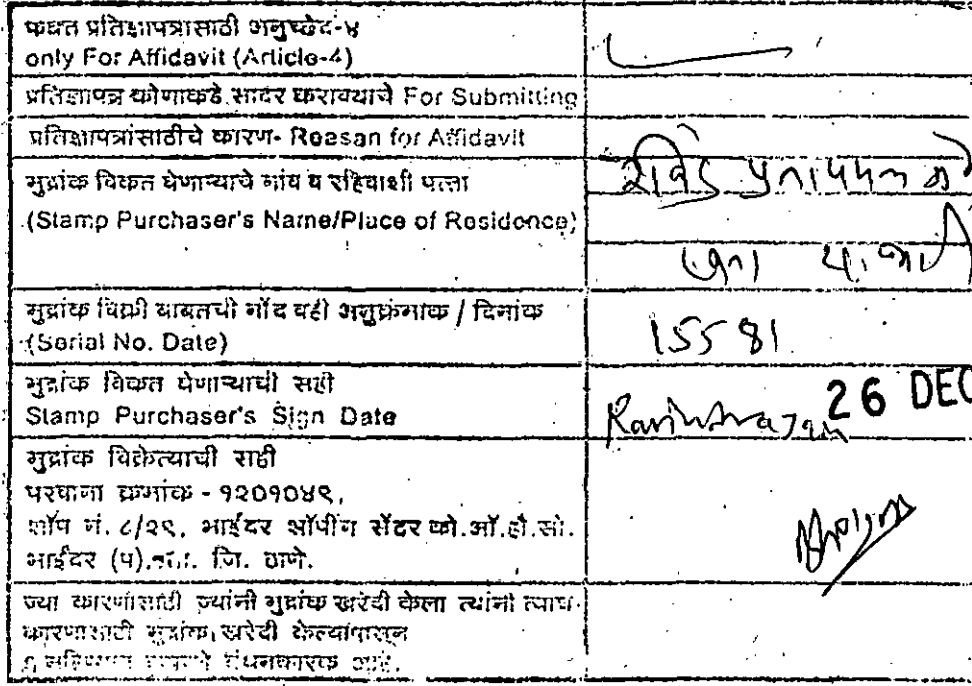 फक्त प्रतिज्ञापत्रासाठी अनुच्छेद-४
only For Affidavit (Article-4)
प्रतिज्ञापत्र कोणाकडे सादर करावयाचे For Submitting
प्रतिज्ञापत्रांसाठीचे कारण- Reasan for Affidavit
मुद्रांक विकत घेणाऱ्याचे नांव व रहिवाशी पत्ता
(Stamp Purchaser's Name/Place of Residence)
मुद्रांक विक्री बाबतची नोंद वही अनुक्रंमाक / दिनांक
(Serial No. Date)
15581
मुद्रांक विकत घेणाऱ्याची सही
Stamp Purchaser's Sign Date
26 DEC
मुद्रांक विक्रेत्याची सही
परवाना क्रमांक - १२०१०४९,
शॉप नं. ८/२९, भाईंदर शॉपींग सेंटर को.ऑ.हौ.सो.
भाईंदर (प). जि. ठाणे.
ज्या कारणांसाठी ज्यांनी मुद्रांक खरेदी केला त्यांनी त्याच
कारणासाठी मुद्रांक खरेदी केल्यापासून
बंधनकारक आहे.